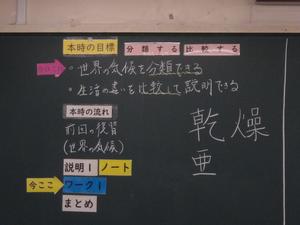 本時の目標 分類する 比較する
・世界の気候を分類できる
・生活の違いを比較して説明できる
本時の流れ
前回の復習
(世界の気候)
説明1 ノート
今ここ ワーク1
まとめ
乾燥
亜